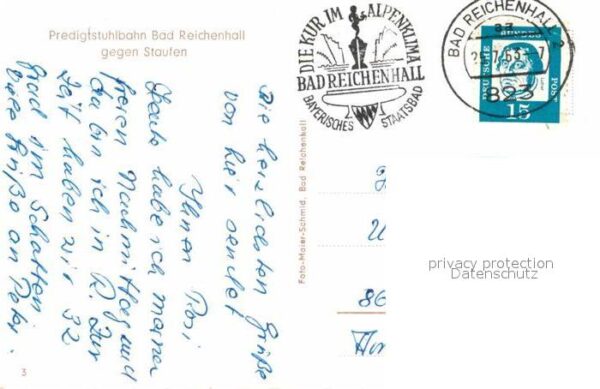 Predigtstuhlbahn Bad Reichenhall
gegen Staufen
DIE KUR IM ALPENKLIMA
BAD REICHENHALL
BAYERISCHES STAATSBAD
BAD REICHENHALL 2
7
823
DEUTSCHE BUNDESPOST
15
Die herzlichsten Grüße
von hier sendet
Ihnen Rosi
Heute habe ich meinen
freien Nachmittag und
da bin ich in R. Zur
Zeit haben wir 32
Grad im Schatten
Viele Grüße an Peter.
Foto-Maier-Schmid, Bad Reichenhall
86
privacy protection
Datenschutz
3